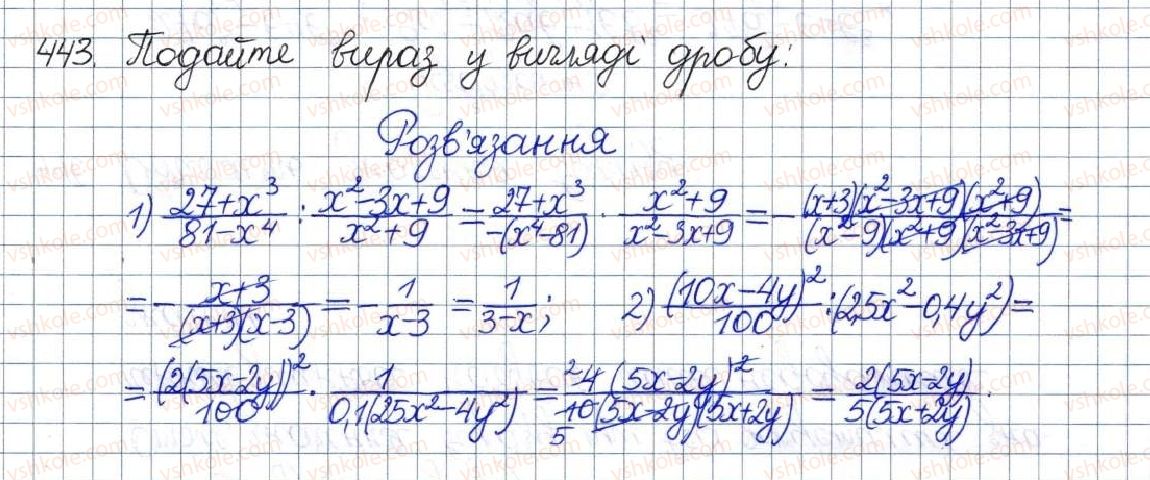 443. Подайте вираз у вигляді дробу:
Розв'язання
1) (27+x³)/(81-x⁴) : (x²-3x+9)/(x²+9) = (27+x³)/(-(x⁴-81)) · (x²+9)/(x²-3x+9) = -((x+3)(x²-3x+9)(x²+9))/((x²-9)(x²+9)(x²-3x+9)) =
= -(x+3)/((x+3)(x-3)) = -1/(x-3) = 1/(3-x); 2) (10x-4y)²/100 : (2,5x²-0,4y²) =
= (2(5x-2y))²/100 · 1/(0,1(25x²-4y²)) = 2 4(5x-2y)²/(10 5(5x-2y)(5x+2y)) = 2(5x-2y)/(5(5x+2y)).